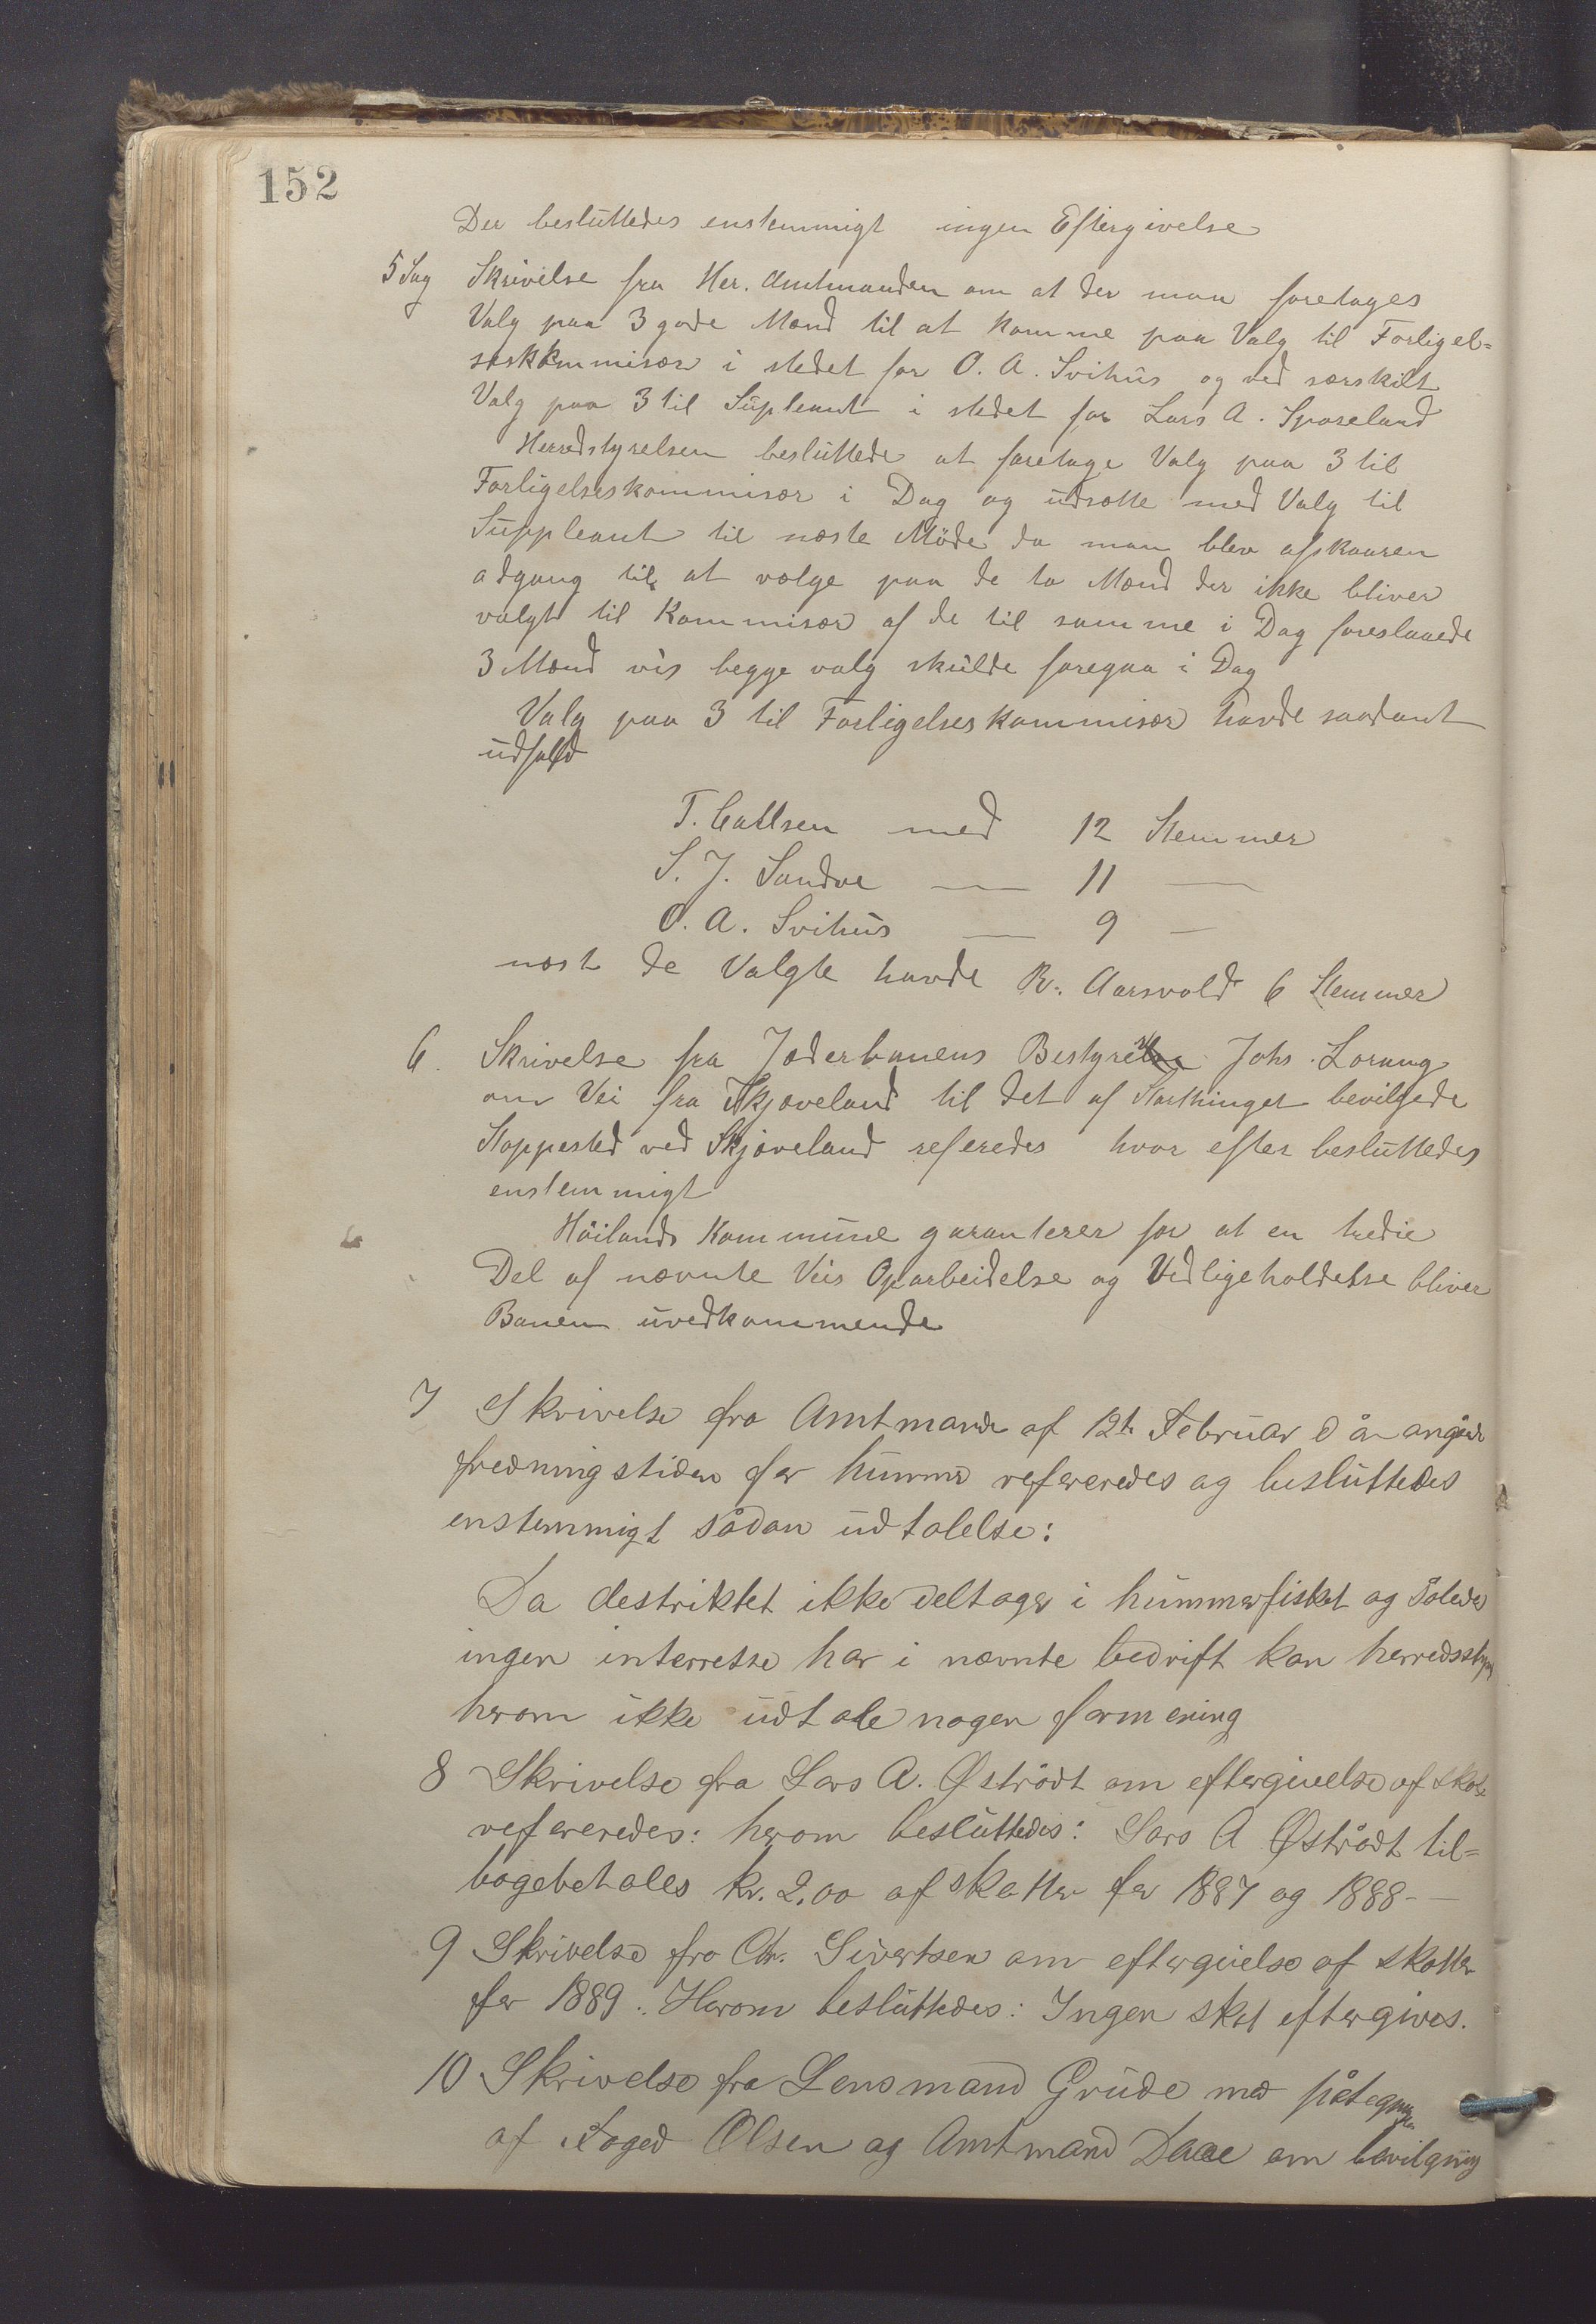 152
Der beslúttedes enstemmigt ingen Eftergivelse
5 Sag Skrivelse fra Her. Amtmanden om at der maa foretages
Valg paa 3 gode Mænd til at komme paa Valg til Forligel=
seskommisær i stedet for O. A. Svihús og ved særskilt
Valg paa 3 til Súpleant i stedet for Lars A. Sporeland
Herredstyrelsen beslúttede at foretage Valg paa 3 til
Forligelseskommisær i Dag og údsætte med Valg til
Súppleant til næste Möde da man blev afskaaren
adgang til at vælge paa de to Mænd der ikke bliver
valgt til Kommisær af de til samme i Dag foreslaaede
3 Mænd vis begge valg skúlde foregaa i Dag
Valg paa 3 til Forligelseskommisær havde saadant
údfald
T. Carlsen med 12 Stemmer
S. J. Sandve — 11 —
O. A. Svihús — 9 —
næst de Valgte havde R. Aarsvold 6 Stemmer
6. Skrivelse fra Jæderbanens Bestyrer Johs. Lorang
om Vei fra Skjæveland til det af Storthinget bevilgede
Stoppested ved Skjæveland referedes hvor efter beslúttedes
enstemmigt
Höilands Kommúne garanterer for at en tredie
Del af nævnte Veis Oparbeidelse og Vedligeholdelse bliver
Banen úvedkommende
7 Skrivelse fra Amtmand af 12te Febrúar d år angåd
fredningstiden for húmmer refereredes og beslúttedes
enstemmigt sådan údtalelse:
Da destriktet ikke deltager i húmmerfisket og således
ingen interresse har i nævnte bedrift kan herredsstyr
herom ikke údtale nogen formening
8 Skrivelse fra Lars A. Østrådt om eftergivelse af skat
refereredes: herom beslúttedes: Lars A Østrådt til=
bagebetales kr. 2.00 af skatter for 1887 og 1888 —
9 Skrivelse fra Chr. Sivertsen om eftergivelse af skatter
for 1889. Herom beslúttedes: Ingen skat eftergives.
10 Skrivelse fra Lensmand Grúde med påtegninger
af Foged Olsen og Amtmand Daae om bevilgning